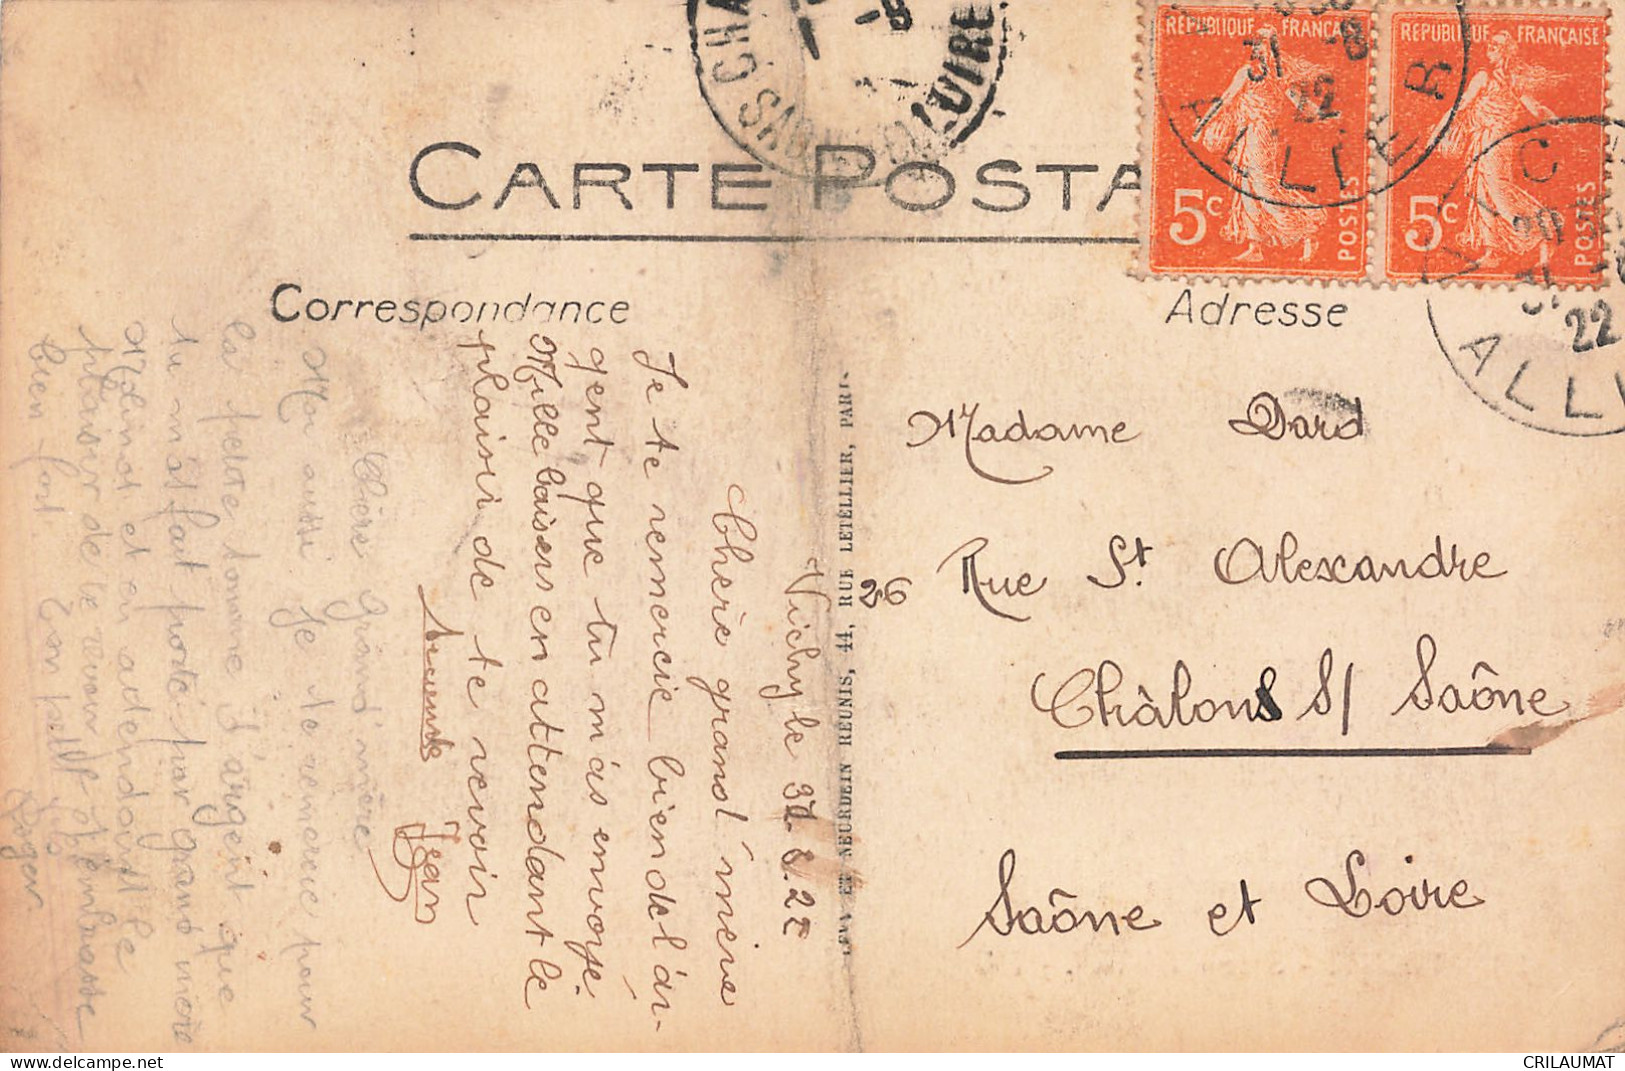 CARTE POSTA
Correspondance
Adresse
RÉPUBLIQUE FRANÇAISE
5c
POSTES
RÉPUBLIQUE FRANÇAISE
5c
POSTES
31 -8
22
ALLIER
31
22
ALLI
CHA
LOIRE
Madame Dard
26 Rue St. Alexandre
Châlons S/ Saône
Saône et Loire
LEVY ET NEURDEIN REUNIS, 44, RUE LETELLIER, PARIS
Vichy le 31. 8. 22
Chère grand'mère
Je te remercie bien de l'ar-
gent que tu m'as envoyé.
Mille baisers en attendant le
plaisir de te revoir
Jean
Chère grand'mère
Moi aussi je te remercie pour
la petite somme d'argent que
tu m'as fait porter par grand mère
Molinot et en attendant le
plaisir de te revoir je t'embrasse
bien fort Ton petit
Roger
CRILAUMAT